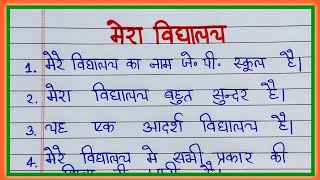 मेरा विद्यालय
1. मेरे विद्यालय का नाम जे० पी० स्कूल है।
2. मेरा विद्यालय बहुत सुन्दर है।
3. यह एक आदर्श विद्यालय है।
4. मेरे विद्यालय मे सभी प्रकार की